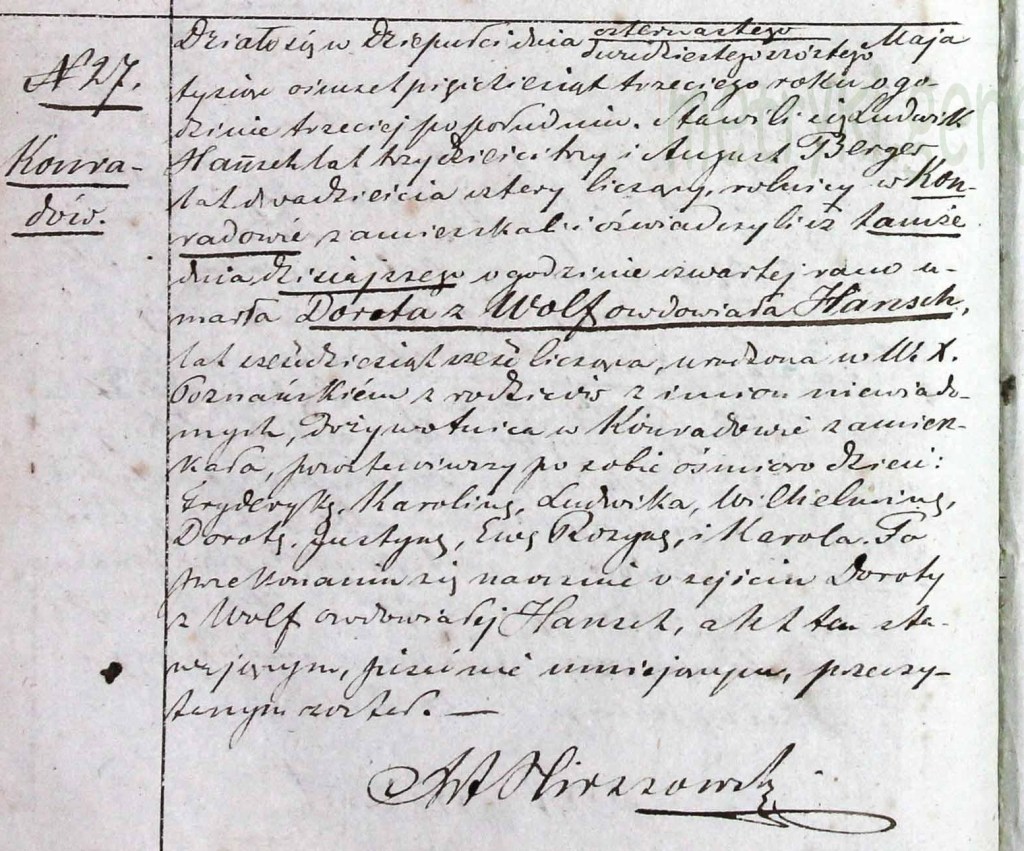 N 27.
Konra-
dów.
Działo się w Dziepulci dnia czternastego
dwudziestego szóstego Maja
tysiąc ośmset pięćdziesiąt trzeciego roku o go-
dzinie trzeciej po południu. Stawili się Ludwik
Hansch lat trzydzieści trzy i August Berger
lat dwadzieścia cztery liczący, rolnicy w Kon-
radowie zamieszkali i oświadczyli iż tamże
dnia dzisiajszego o godzinie czwartej rano u-
marła Dorota z Wolf owdowiała Hansch,
lat sześdziesiąt sześć licząca, urodzona w W. X.
Poznańskiém z rodziców z imion niewiado-
mych, dożywotnica w Konradowie zamiesz-
kała, pozostawiwszy po sobie ośmioro dzieci:
Fryderykę, Karolinę, Ludwika, Wilhelminę,
Dorotę, Justynę, Ewę Rozynę, i Karola. Po
przekonaniu się naocznie o zejściu Doroty
z Wolf owdowiałej Hansch, akt ten sta-
wającym, pisać nie umiejącym, przeczy-
tanym został. —